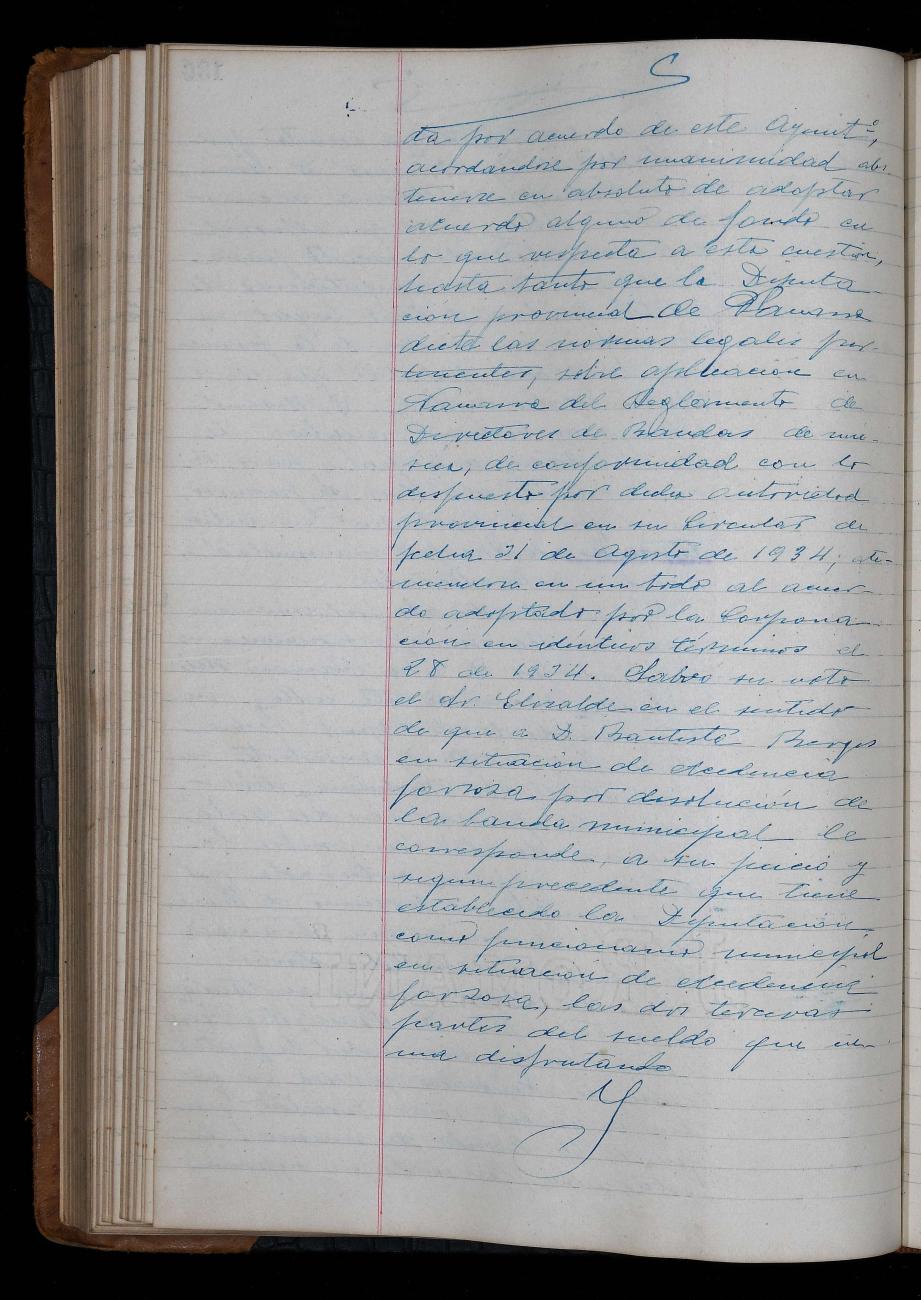 da por acuerdo de este Ayuntº,
acordandose por unanimidad abs
tenerse en absoluto de adoptar
acuerdo alguno de fondo en
lo que respecta a esta cuestión,
hasta tanto que la Diputa
ción provincial de Navarra
dicte las normas legales per-
tinentes, sobre aplicación en
Navarra del Reglamento de
Directores de Bandas de mú-
sica, de conformidad con lo
dispuesto por dicha autoridad
provincial en su Circular de
fecha 21 de Agosto de 1934, ate-
niendose en un todo al acuer-
do adoptado por la Corpora-
ción en identicos términos el
28 de 1934. Salvo su voto
el Sr. Elizalde en el sentido
de que a D. Bautista Berges
en situacion de excedencia
forzosa por disolución de
la banda municipal le
corresponde, a su juicio y
segun precedente que tiene
establecido la Diputación,
como funcionario municipal
en situación de excedencia
forzosa, las dos terceras
partes del sueldo que ve-
nia disfrutando